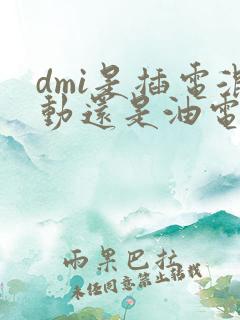 dmi是插電混
動還是油電
兩果巴拉
未經同意禁止轉載